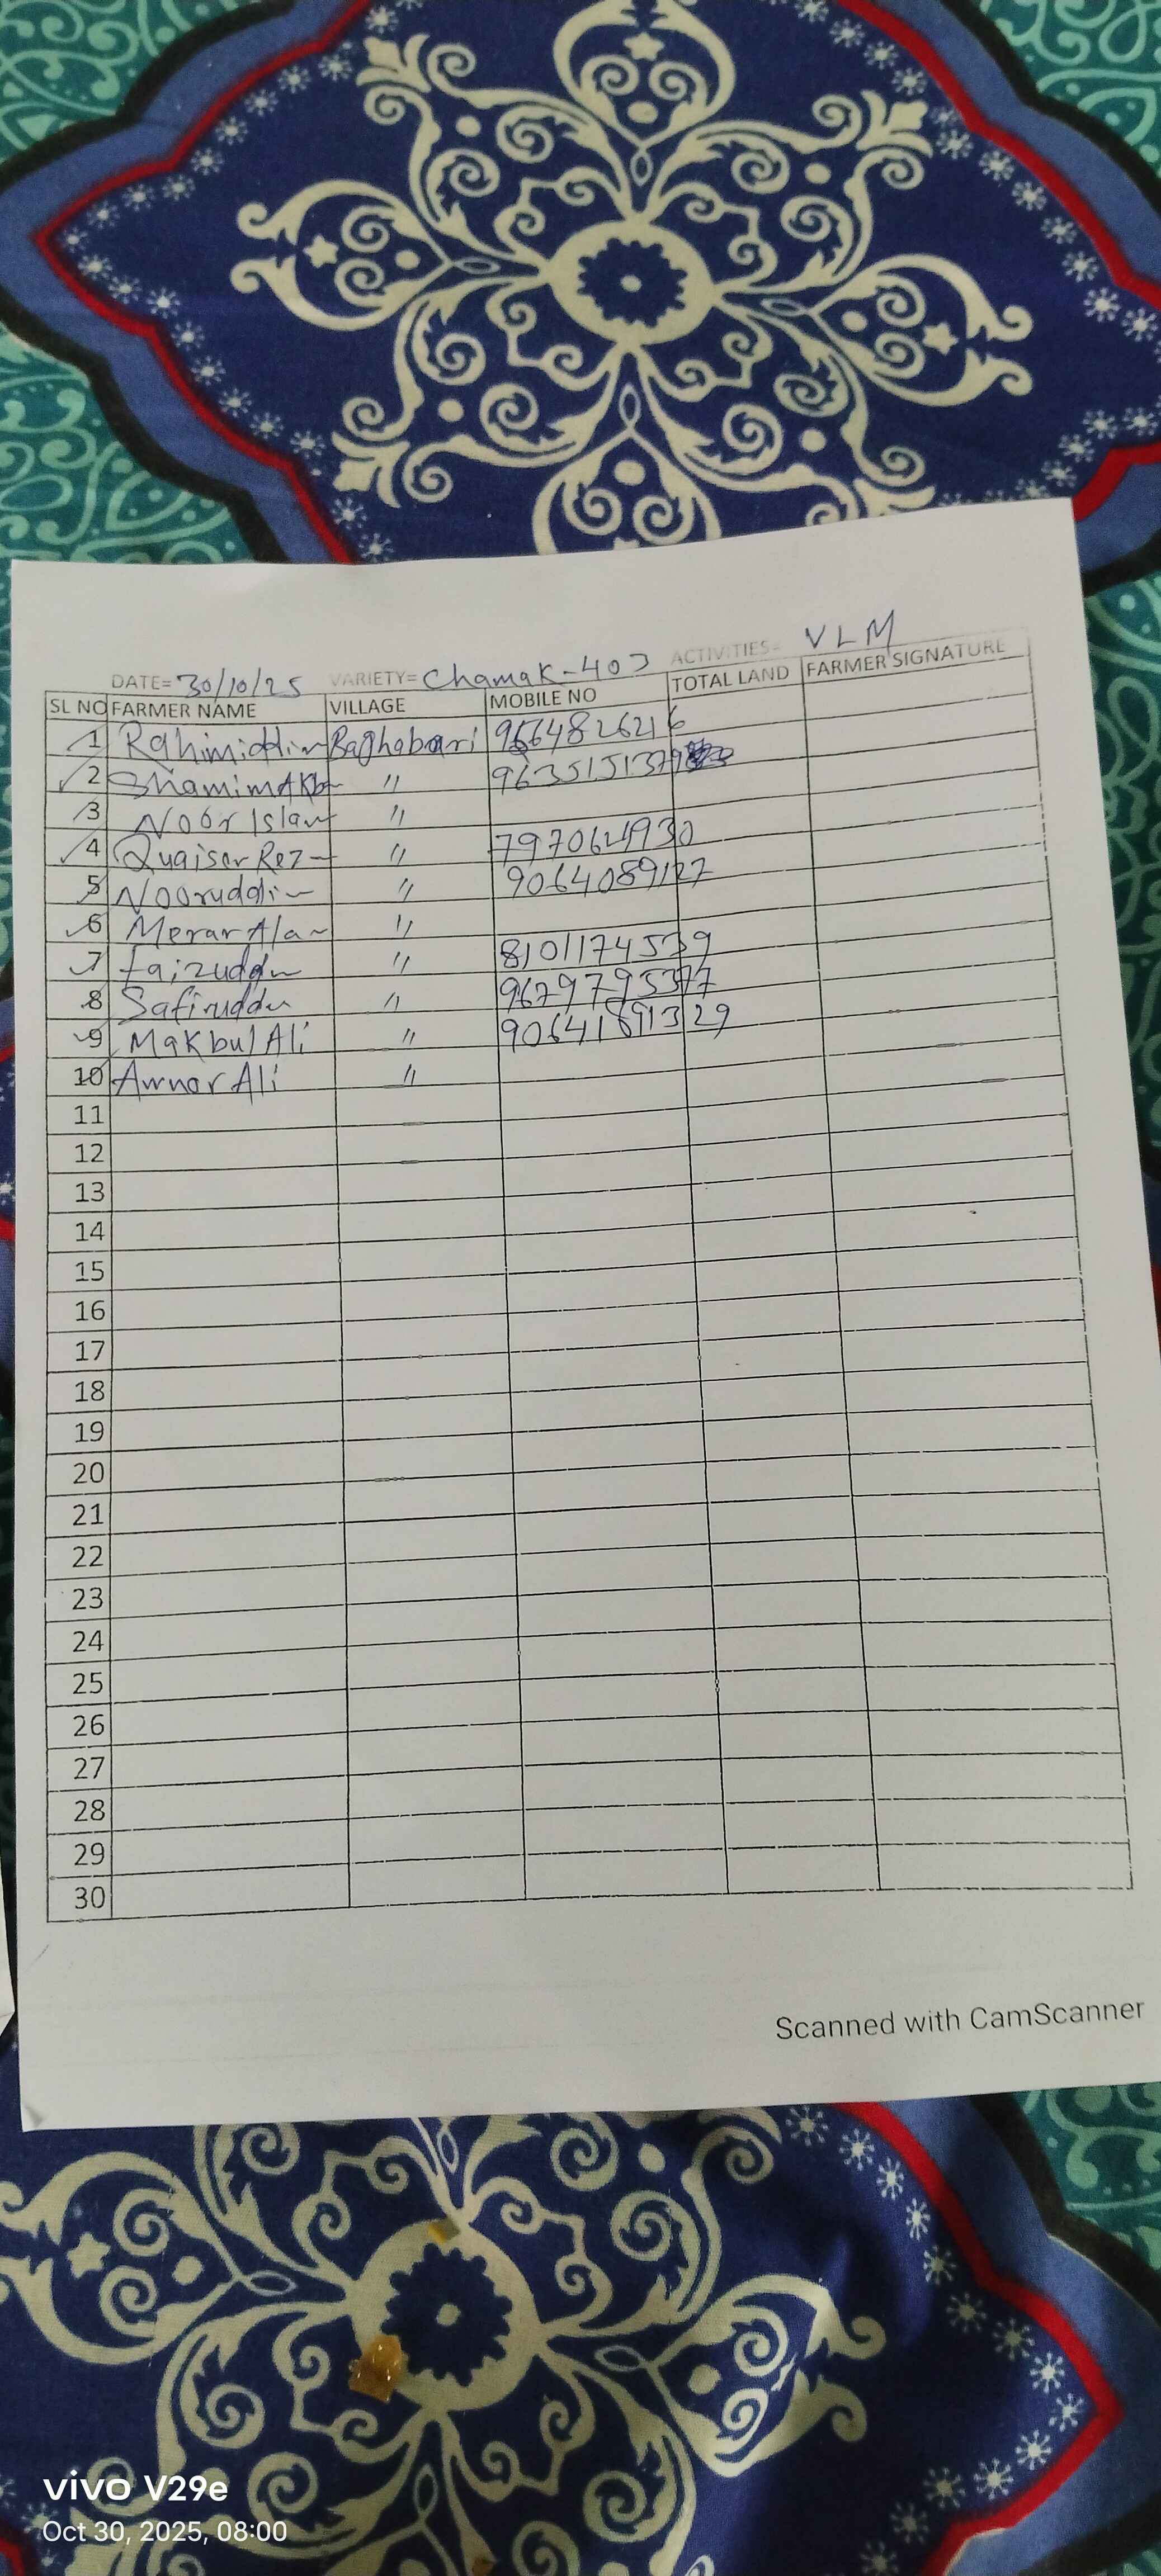 DATE= 30/10/25 VARIETY= Chamak-403 ACTIVITIES= VLM
SL NO FARMER NAME VILLAGE MOBILE NO TOTAL LAND FARMER SIGNATURE
1 Rahimiddin Baghabari 9564826216
2 Shamim Akb " 9635151379
3 Noor Islam "
4 Quaisar Rez " 7970624930
5 Nooruddin " 9064089127
6 Merar Alam "
7 faizuddin " 8101174539
8 Safiruddin " 9679795377
9 Makbul Ali " 90641891329
10 Anwar Ali "
11
12
13
14
15
16
17
18
19
20
21
22
23
24
25
26
27
28
29
30
Scanned with CamScanner
vivo V29e
Oct 30, 2025, 08:00